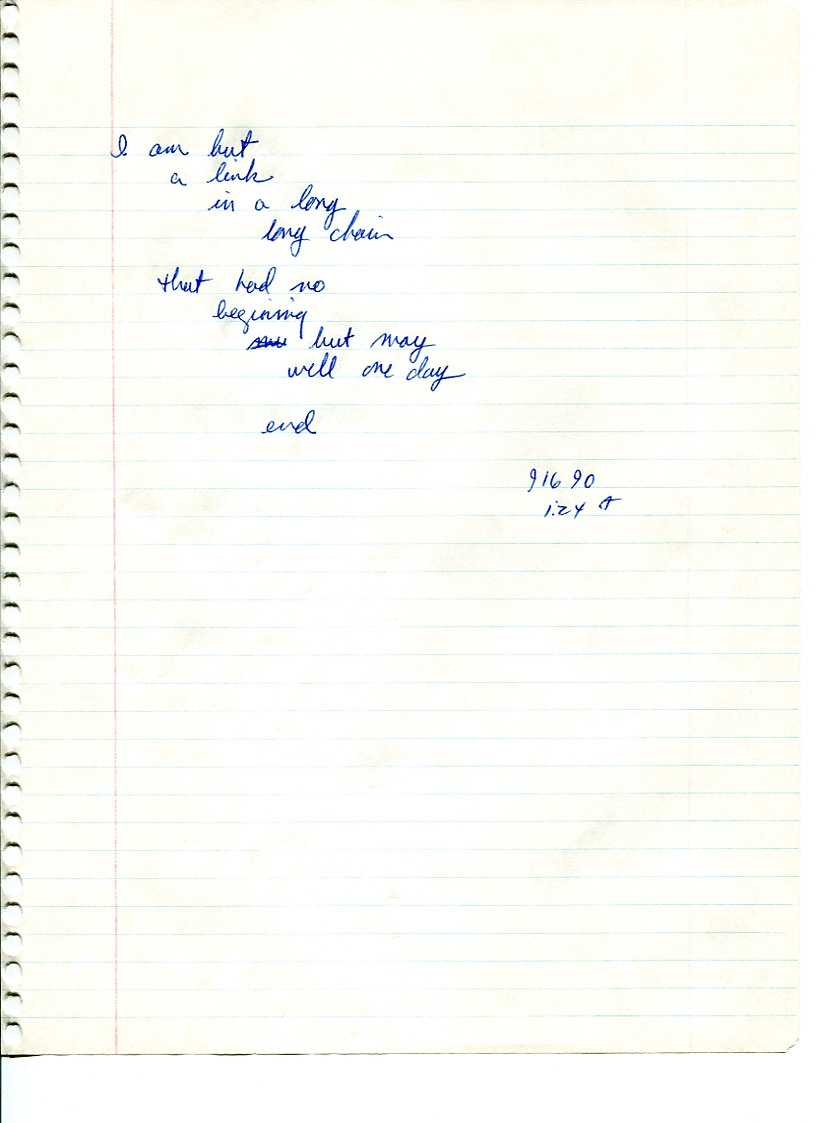 I am but
a link
in a long
long chain
that had no
begining
but may
well one day
end
9 16 90
1:24 A